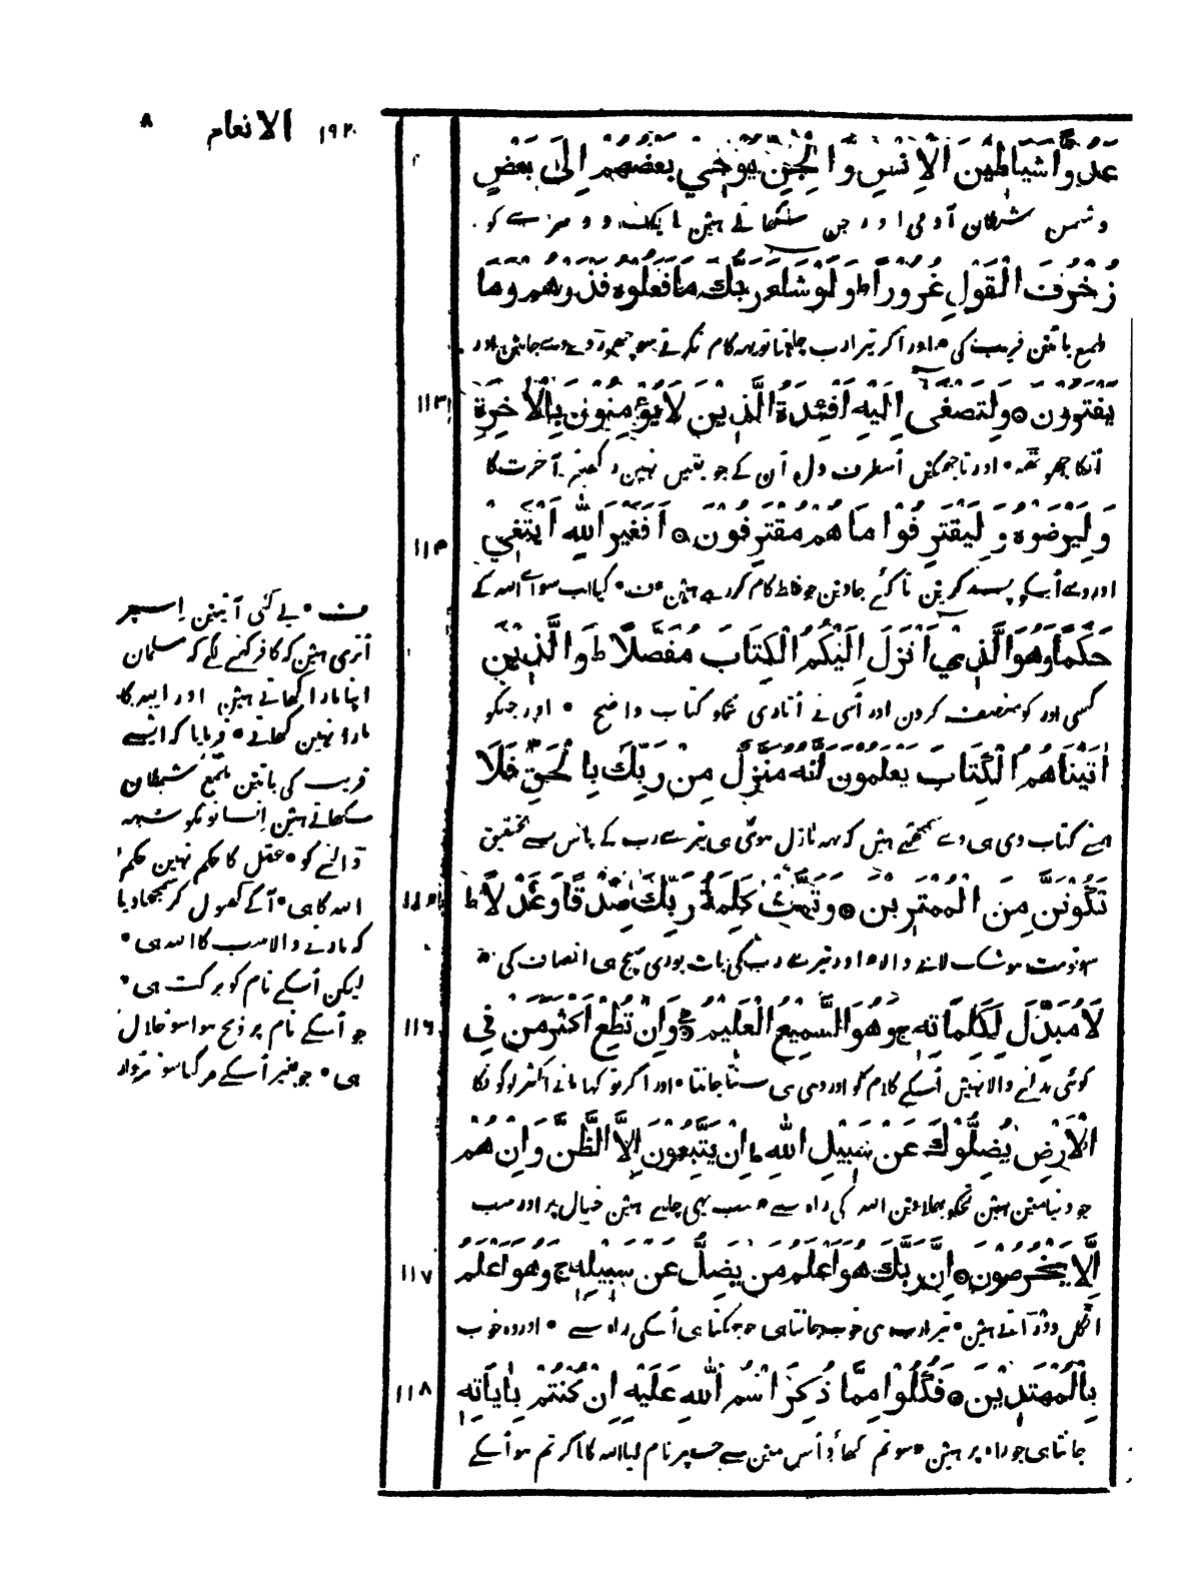 ۸ الانعام ۱۹۲
عَدُوًّا شَيَاطِيْنَ الْاِنْسِ وَالْجِنِّ يُوْحِيْ بَعْضُهُمْ اِلٰى بَعْضٍ
دشمن شیطان آدمی اور جن سکھاتے ہین ایک دوسرے کو
زُخْرُفَ الْقَوْلِ غُرُوْرًا ط وَلَوْ شَاءَ رَبُّكَ مَا فَعَلُوْهُ فَذَرْهُمْ وَمَا
ملمع باتین فریب کی • اور اگر تیرا رب چاہتا تو یہہ کام نکرتے سو چھوڑ دے وے جانین اور
۱۱۳ يَفْتَرُوْنَ ۞ وَلِتَصْغٰى اِلَيْهِ اَفْئِدَةُ الَّذِيْنَ لَا يُؤْمِنُوْنَ بِالْاٰخِرَةِ
اُنکا جھوٹھہ • اور تا جھکین اُسطرف دل اُن کے جو یقین نہین رکھتے آخرت کا
۱۱۴ وَلِيَرْضَوْهُ وَلِيَقْتَرِفُوْا مَا هُمْ مُقْتَرِفُوْنَ ۞ اَفَغَيْرَ اللّٰهِ اَبْتَغِيْ
اور وے اُسکو پسند کرین تا کئے جاوین جو غلط کام کر رہے ہین ف • کیا اب سواے اللہ کے
حَكَمًا وَهُوَ الَّذِيْ اَنْزَلَ اِلَيْكُمُ الْكِتَابَ مُفَصَّلًا ط وَالَّذِيْنَ
کسی اور کو منصف کرون اور اُسی نے اُتاری تمکو کتاب واضح • اور جنکو
اٰتَيْنَاهُمُ الْكِتَابَ يَعْلَمُوْنَ اَنَّهُ مُنَزَّلٌ مِنْ رَبِّكَ بِالْحَقِّ فَلَا
ہمنے کتاب دی ہی وے سمجھتے ہین کہ یہہ نازل ہوئی ہی تیرے رب کے پاس سے تحقیق
۱۱۵ تَكُوْنَنَّ مِنَ الْمُمْتَرِيْنَ ۞ وَتَمَّتْ كَلِمَةُ رَبِّكَ صِدْقًا وَعَدْلًا ط
سو تو مت ہو شک لانے والا • اور تیرے رب کی بات پوری سچ ہی انصاف کی •
۱۱۶ لَا مُبَدِّلَ لِكَلِمَاتِهِ ج وَهُوَ السَّمِيْعُ الْعَلِيْمُ ۞ وَاِنْ تُطِعْ اَكْثَرَ مَنْ فِي
کوئی بدلنے والا نہین اُسکے کلام کو اور وہی ہی سنتا جانتا • اور اگر تو کہا مانے اکثر لوگونکا
الْاَرْضِ يُضِلُّوْكَ عَنْ سَبِيْلِ اللّٰهِ ط اِنْ يَتَّبِعُوْنَ اِلَّا الظَّنَّ وَاِنْ هُمْ
جو دنیا مین ہین تجکو بھلا دین اللہ کی راہ سے • سب یہی چلے ہین خیال پر اور سب
۱۱۷ اِلَّا يَخْرُصُوْنَ ۞ اِنَّ رَبَّكَ هُوَ اَعْلَمُ مَنْ يَضِلُّ عَنْ سَبِيْلِهِ ج وَهُوَ اَعْلَمُ
اٹکل دوڑاتے ہین • تیرا رب ہی خوب جانتا ہی جو بہکتا ہی اُسکی راہ سے • اور وہ خوب
۱۱۸ بِالْمُهْتَدِيْنَ ۞ فَكُلُوْا مِمَّا ذُكِرَ اسْمُ اللّٰهِ عَلَيْهِ اِنْ كُنْتُمْ بِاٰيَاتِهِ
جانتا ہی جو راہ پر ہین • سو تم کھاؤ اُس مین سے جسپر نام لیا اللہ کا اگر تم ہو اُسکے
ف • یے کئی آیتین اِسپر
اُتری ہین کہ کافر کہنے لگے کہ مسلمان
اپنا مارا کھاتے ہین اور اللہ کا
مارا نہین کھاتے • فرمایا کہ ایسے
فریب کی باتین ملمع شیطان
سکھاتے ہین اِنسانونکو شبہہ
ڈالنے کو • عقل کا حکم نہین حکم
اللہ کا ہی • آگے کھول کر سمجھا دیا
کہ مارنے والا سب کا اللہ ہی •
لیکن اُسکے نام کو برکت ہی •
جو اُسکے نام پر ذبح ہوا سو حلال
ہی • جو بغیر اُسکے مر گیا سو مردار